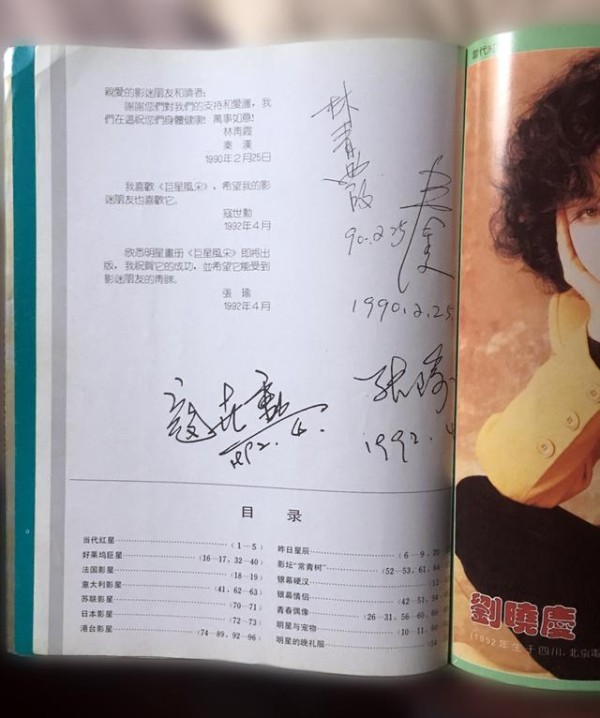 親愛的影迷朋友和讀者:
謝謝您們對我們的支持和愛護, 我
們在這祝您們身體健康! 萬事如意!
林青霞
秦 漢
1990年2月25日
我喜歡《巨星風采》, 希望我的影
迷朋友也喜歡它。
寇世勳
1992年4月
欣悉明星畫册《巨星風采》即將出
版, 我祝賀它的成功, 並希望它能受到
影迷朋友的青睞。
張 瑜
1992年4月
林青霞
90.2.25
秦漢
1990.2.25
寇世勳
1992.4.
张瑜
1992.4
目 录
当代红星 (1—5)
好莱坞巨星 (16—17, 32—40)
法国影星 (18—19)
意大利影星 (41, 62—63)
苏联影星 (70—71)
日本影星 (72—73)
港台影星 (74—89, 92—96)
昨日星辰 (6—9, 20
影坛“常青树” (52—53, 61, 64
银幕硬汉 (12
银幕情侣 (42—51, 54
青春偶像 (26—31, 56—60, 66
明星与宠物 (10—11, 90
明星的晚礼服
當代
劉曉慶
(1952年生于四川, 北京電